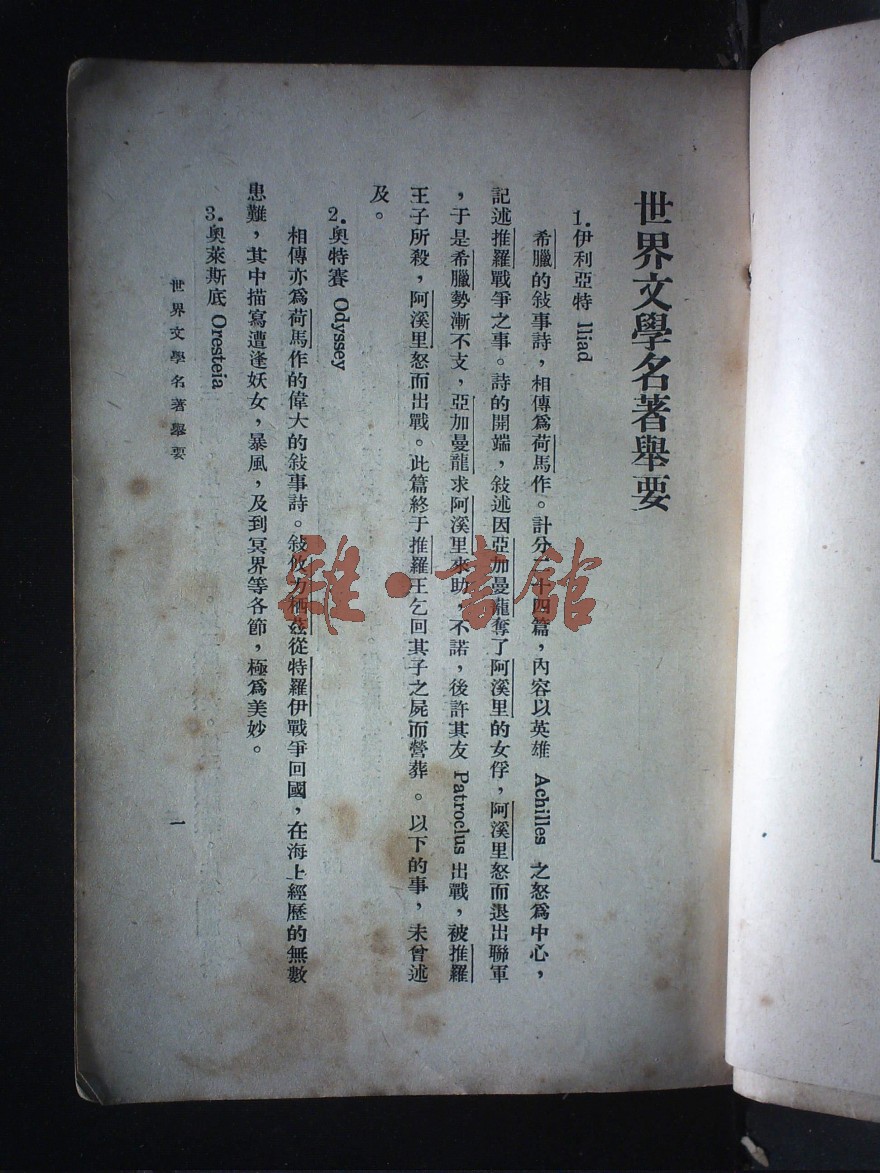 世界文學名著舉要
1.伊利亞特 Iliad
希臘的敍事詩，相傳爲荷馬作。計分二十四篇，內容以英雄 Achilles 之怒爲中心，
記述推羅戰爭之事。詩的開端，敍述因亞加曼龍奪了阿溪里的女俘，阿溪里怒而退出聯軍
，于是希臘勢漸不支，亞加曼龍求阿溪里來助，不諾，後許其友 Patroclus 出戰，被推羅
王子所殺，阿溪里怒而出戰。此篇終于推羅王乞回其子之屍而營葬。以下的事，未曾述
及。
2.奧特賽 Odyssey
相傳亦爲荷馬作的偉大的敍事詩。敍攸力栖茲從特羅伊戰爭回國，在海上經歷的無數
患難，其中描寫遭逢妖女，暴風，及到冥界等各節，極爲美妙。
3.奧萊斯底 Oresteia
世界文學名著舉要
一
雜·書館